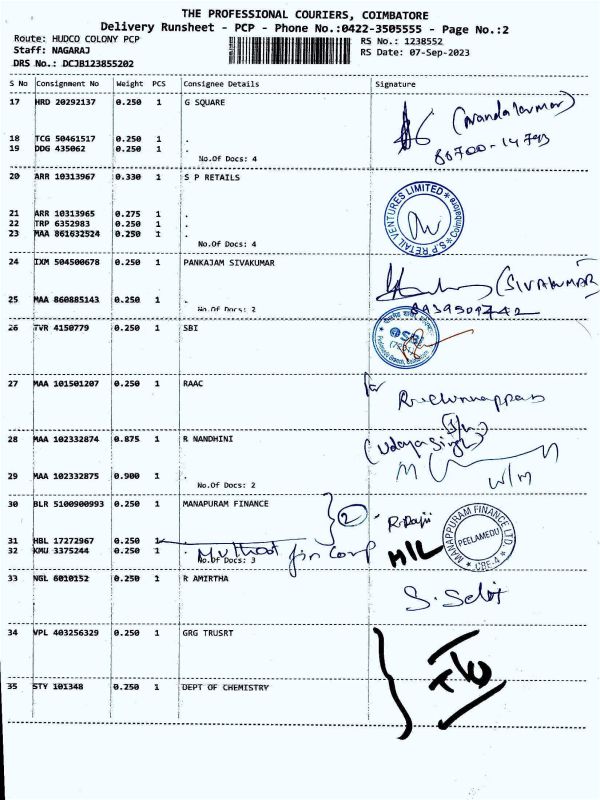 THE PROFESSIONAL COURIERS, COIMBATORE
Delivery Runsheet - PCP - Phone No.:0422-3505555 - Page No.:2
Route: HUDCO COLONY PCP RS No.: 1238552
Staff: NAGARAJ RS Date: 07-Sep-2023
DRS No.: DCJB123855202
S No Consignment No Weight PCS Consignee Details Signature
17 HRD 20292137 0.250 1 G SQUARE
18 TCG 50461517 0.250 1 .
19 DDG 435062 0.250 1 .
No.Of Docs: 4
20 ARR 10313967 0.330 1 S P RETAILS
21 ARR 10313965 0.275 1 .
22 TRP 6352983 0.250 1 .
23 MAA 861632524 0.250 1 .
No.Of Docs: 4
S P RETAIL VENTURES LIMITED Coimbatore
24 IXM 504500678 0.250 1 PANKAJAM SIVAKUMAR
(SIVAKUMAR
25 MAA 860885143 0.250 1 .
No.Of Docs: 2
26 TVR 4150779 0.250 1 SBI
SBI
27 MAA 101501207 0.250 1 RAAC
for
28 MAA 102332874 0.875 1 R NANDHINI
(Udaya Singh)
29 MAA 102332875 0.900 1 .
No.Of Docs: 2
W/M
30 BLR 5100900993 0.250 1 MANAPURAM FINANCE
2
31 HBL 17272967 0.250 1 .
32 KMU 3375244 0.250 1 .
No.Of Docs: 3
Muthoot fin corp
MANAPPURAM FINANCE LTD PEELAMEDU CBE-4
33 NGL 6010152 0.250 1 R AMIRTHA
34 VPL 403256329 0.250 1 GRG TRUSRT
35 STY 101348 0.250 1 DEPT OF CHEMISTRY